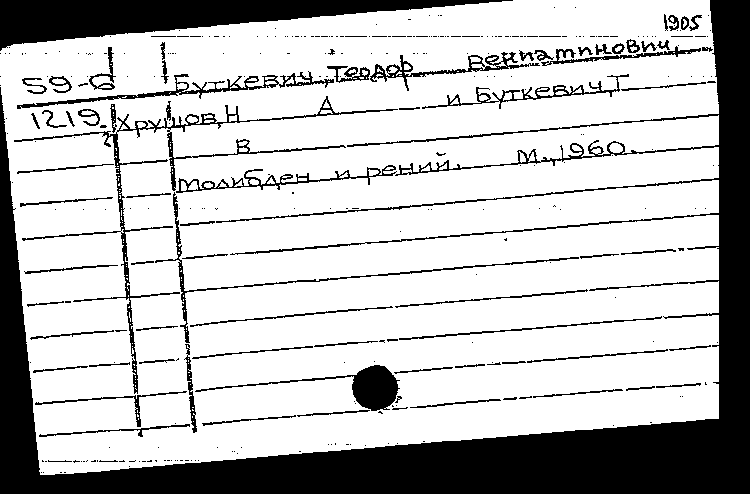 1905
59-6 Буткевич, Теодор Вениаминович,
1219. Хрущов, Н А и Буткевич, Т
2 В
Молибден и рений. М., 1960.